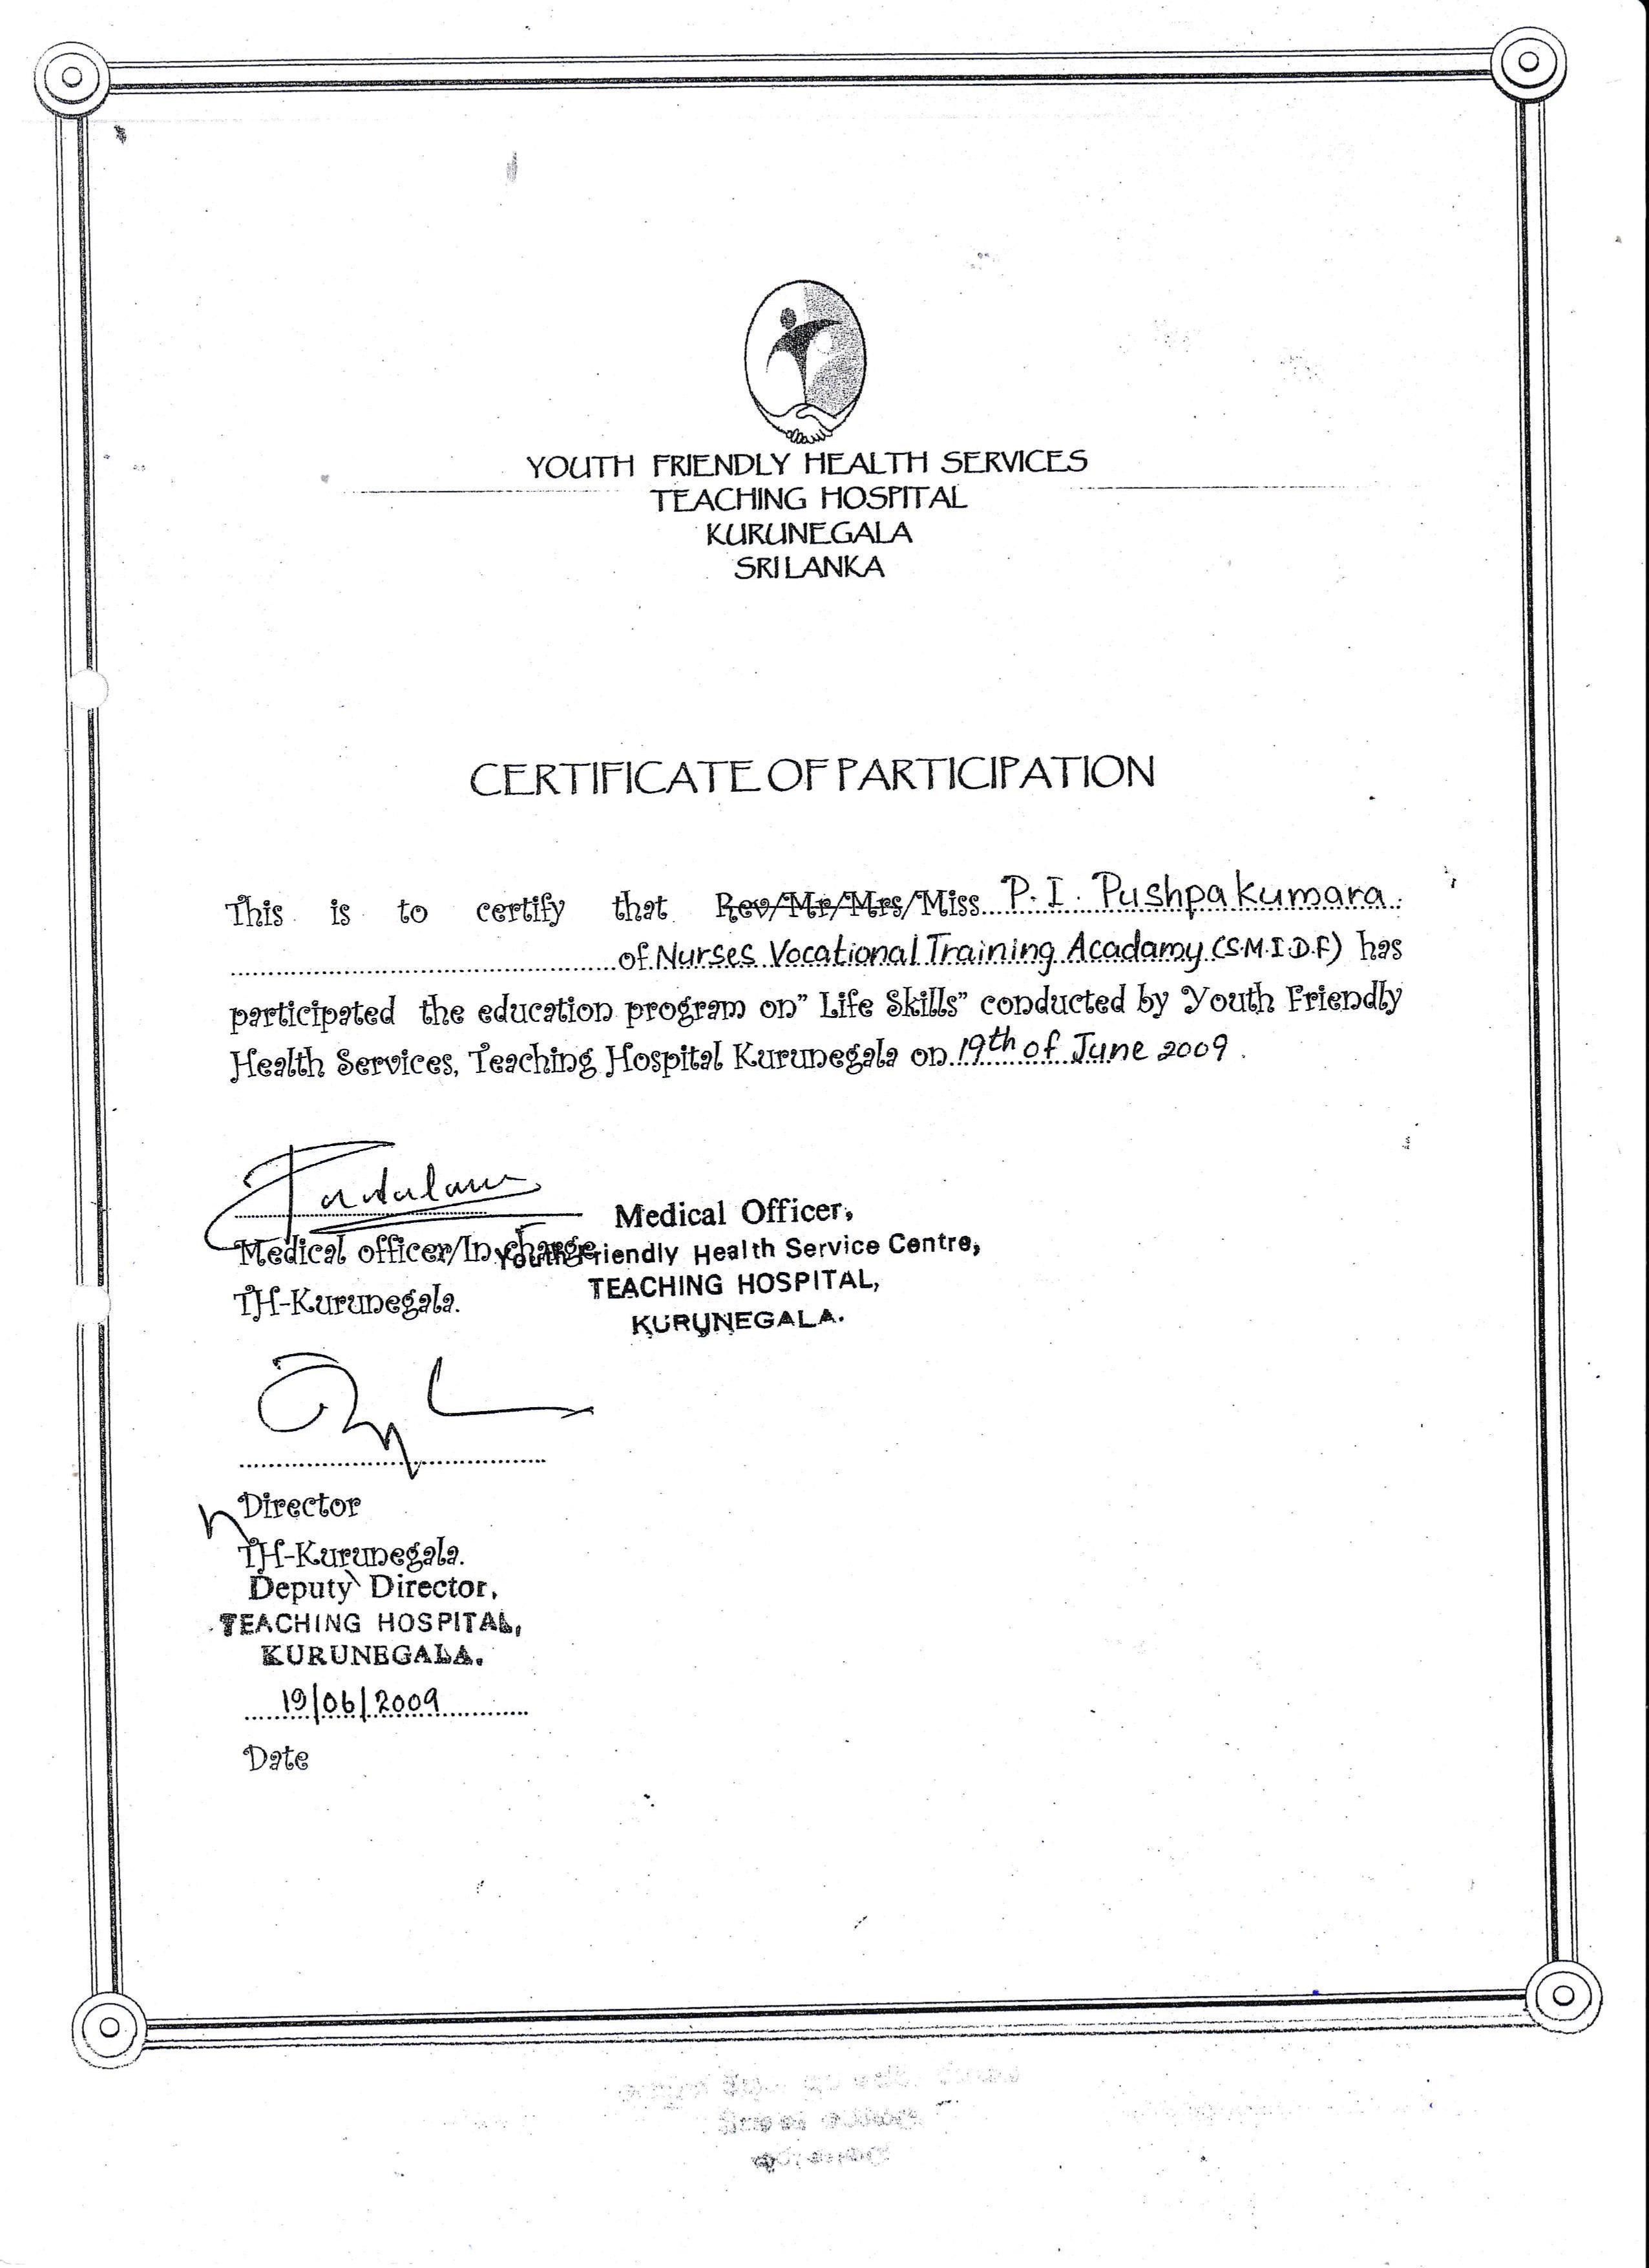 YOUTH FRIENDLY HEALTH SERVICES
TEACHING HOSPITAL
KURUNEGALA
SRI LANKA
CERTIFICATE OF PARTICIPATION
This is to certify that Rev/Mr/Mrs/Miss P. I. Pushpakumara.
of Nurses Vocational Training Acadamy (S.M.I.D.F) has
participated the education program on” Life Skills” conducted by Youth Friendly
Health Services, Teaching Hospital Kurunegala on 19th of June 2009.
Medical officer/In charge
TH-Kurunegala.
Medical Officer,
Youth Friendly Health Service Centre,
TEACHING HOSPITAL,
KURUNEGALA.
Director
TH-Kurunegala.
Deputy Director,
TEACHING HOSPITAL,
KURUNEGALA.
19/06/2009
Date